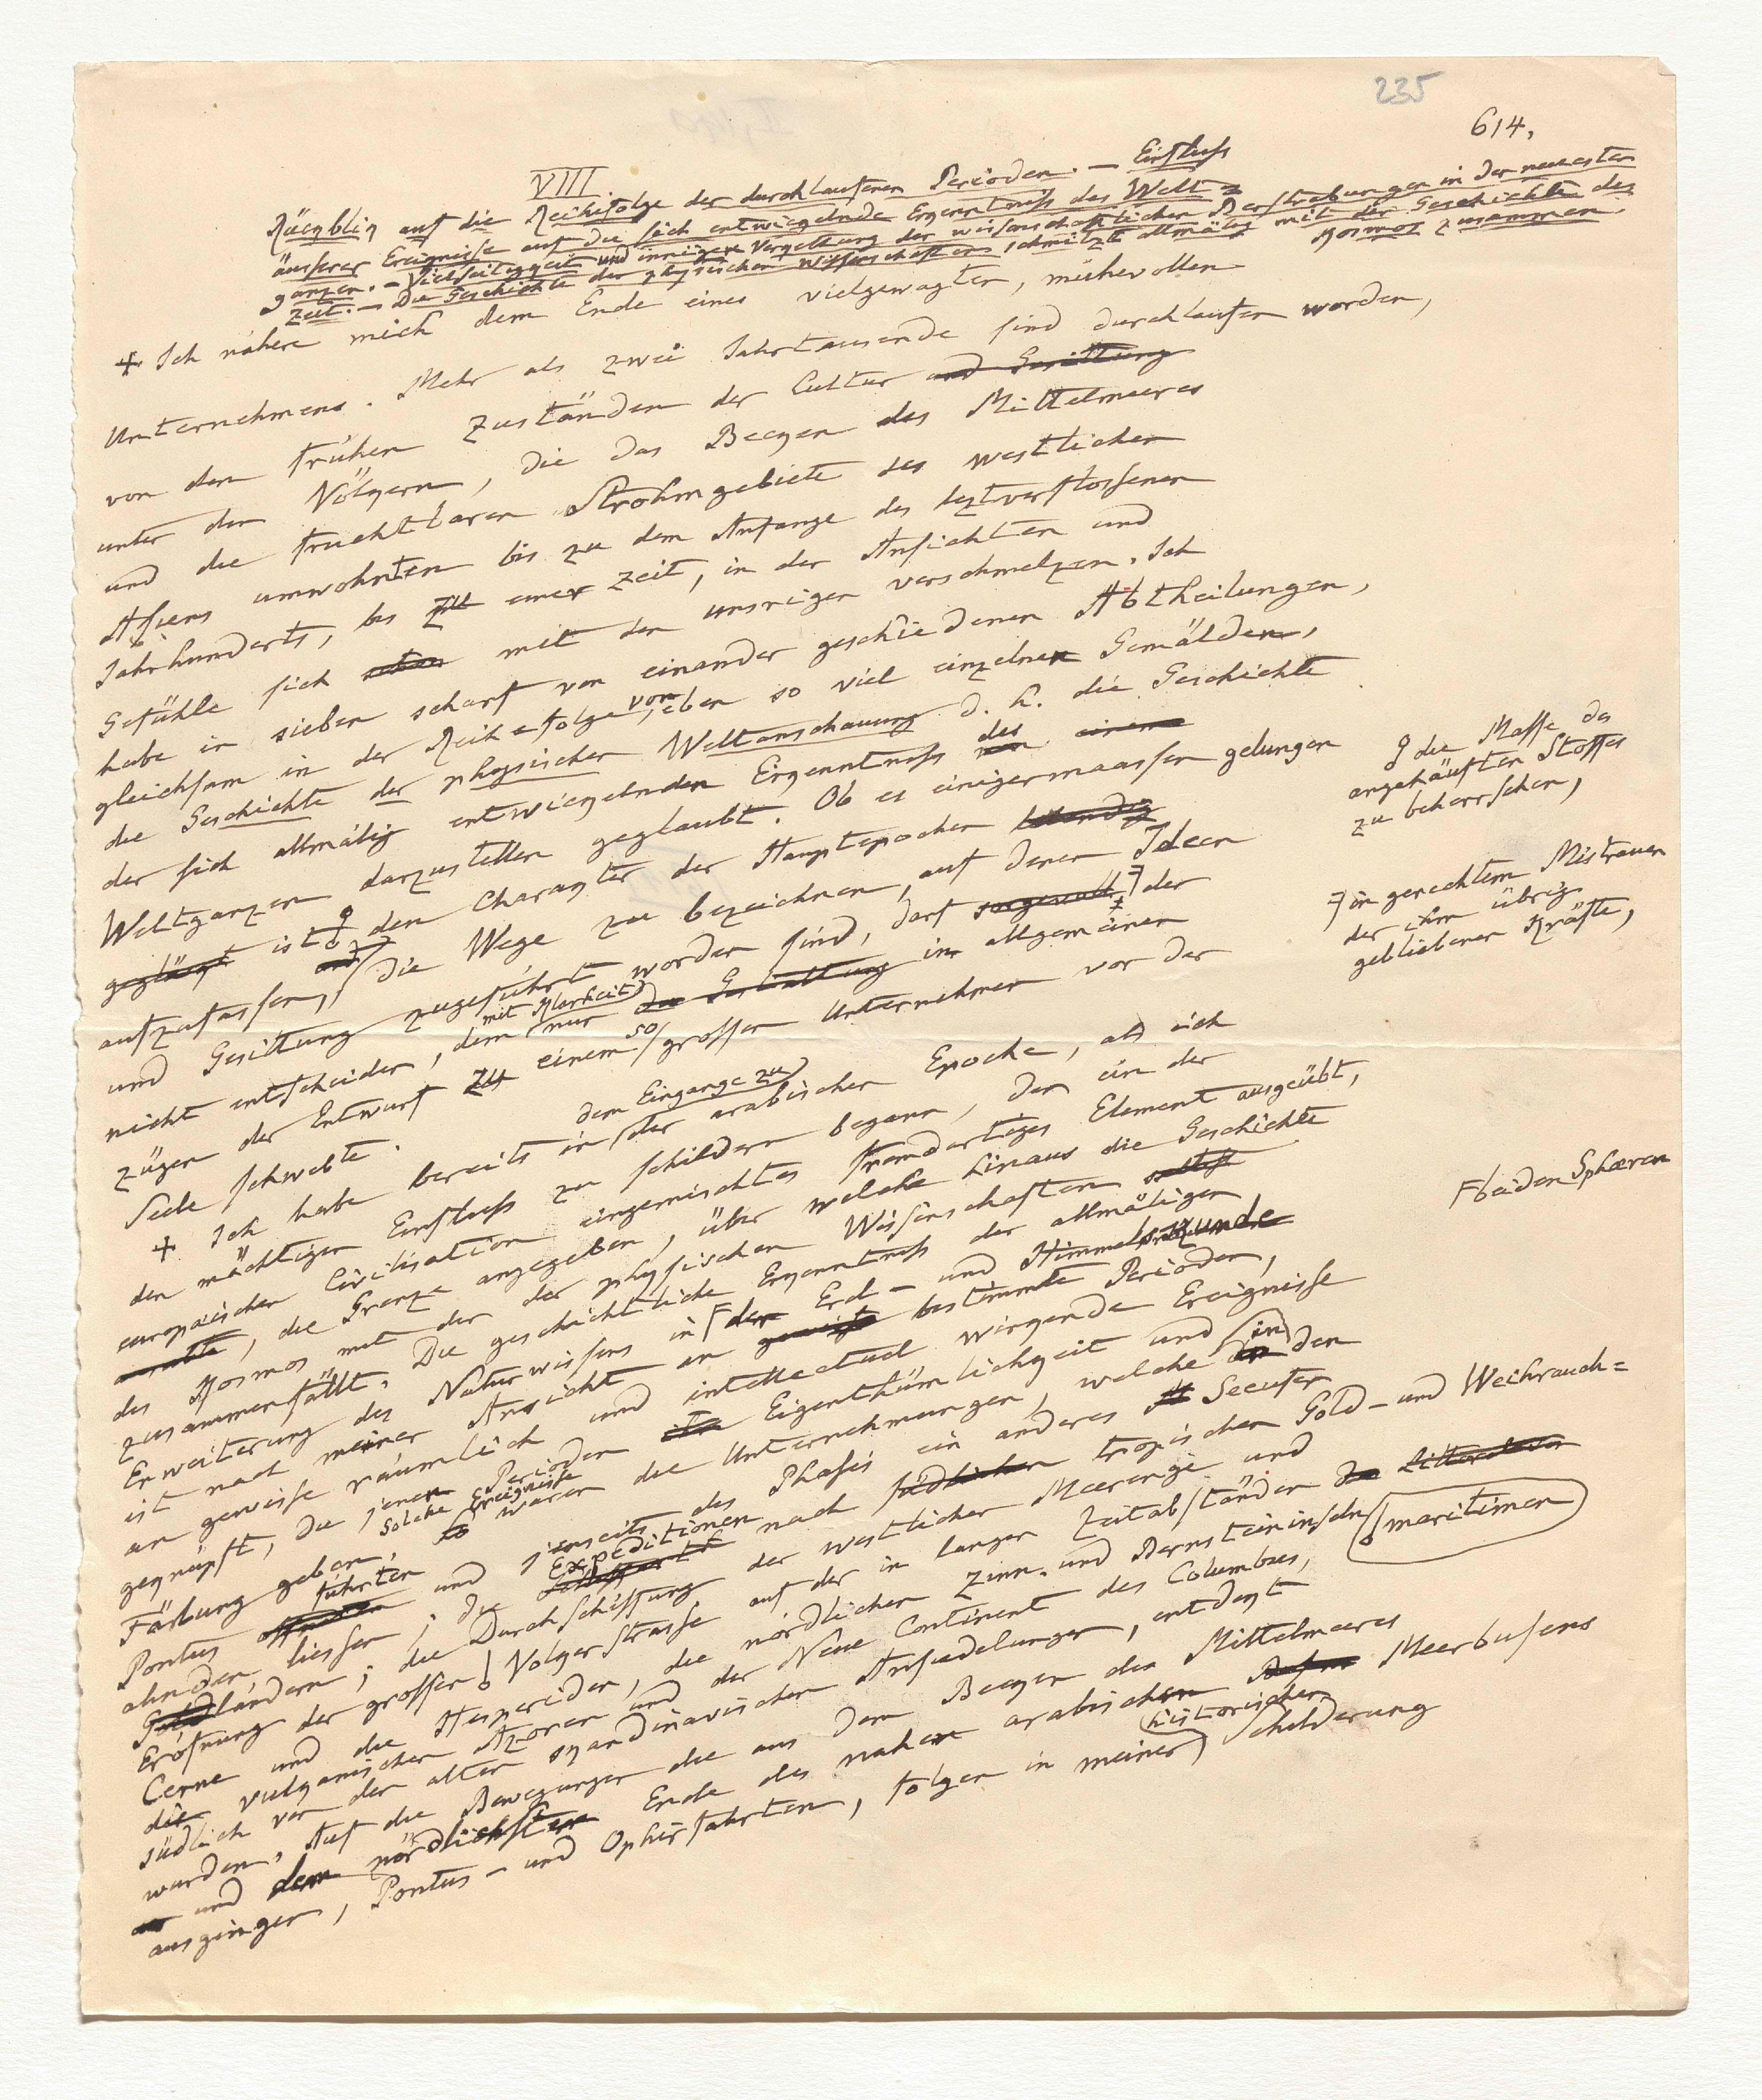 235
614.
VIII
Rückblik auf die Reihefolge der durchlaufenen Perioden. — Einfluss
äusserer Ereignisse auf die sich entwickelnde Erkenntniss des Welt-
ganzen. — Vielseitigkeit und innigere Verkettung der wissenschaftlichen Bestrebungen in der neuesten
Zeit. — Die Geschichte der physischen Wissenschaften schmilzt allmälig mit der Geschichte des
Kosmos zusammen.
+ Ich nähere mich dem Ende eines vielgewagten, mühevollen
Unternehmens. Mehr als zwei Jahrtausende sind durchlaufen worden,
von den frühen Zuständen der Cultur und Gesittung
unter den Völkern, die das Becken des Mittelmeeres
und die fruchtbaren Strohmgebiete des westlichen
Asiens umwohnten bis zu dem Anfange des leztverflossenen
Jahrhunderts, bis zu einer Zeit, in der Ansichten und
Gefühle sich schon mit den unsrigen verschmelzen. Ich
habe in sieben scharf von einander geschiedenen Abtheilungen,
gleichsam in der Reihefolge von eben so viel einzelnen Gemälden,
die Geschichte der physischen Weltanschauung d. h. die Geschichte
der sich allmälig entwickelnden Erkenntniss des einem
Weltganzen darzustellen geglaubt. Ob es einigermaassen gelungen
geglückt ist den Charakter der Hauptepochen lebendig
die Masse des
angehäuften Stoffes
zu beherrschen,
aufzufassen, und die Wege zu bezeichnen, auf denen Ideen
und Gesittung zugeführt worden sind, darf sorgenvoll der
in gerechtem Mistrauen
der ihm übrig
gebliebenen Kräfte,
nicht entscheiden, dem mit Klarheit nur die Gestaltung in allgemeinen
zügen der Entwurf zu einem so grossen Unternehmen vor der
Seele schwebte.
+ Ich habe bereits in dem Eingange zu der arabischen Epoche, als ich
den mächtigen Einfluss zu schildern begann, den ein der
europäischen Civilisation eingemischtes fremdartiges Element ausgeübt,
die Grenze angegeben, über welche hinaus die Geschichte
des Kosmos mit der der physischen Wissenschaften selbst
zusammenfällt. Die geschichtliche Erkenntniss der allmäligen
Erweiterung des Naturwissens in den Erd- und Himmelskunde
beiden Sphæren
ist nach meiner Ansicht an gewisse bestimmte Perioden,
an gewisse räumlich und intellectuel wirkende Ereignisse
geknüpft, die jenen Perioden Eigenthümlichkeit und
Färbung geben. Solche Ereignisse so waren die Unternehmungen, welche in den
Pontus führten und jenseits des Phasis ein anderes Seeufer
ahnden liessen; die Expeditionen nach südlichen tropischen Gold- und Weihrauch-
Goldländern; die Durchschiffung der westlichen Meerenge und
Eröfnung der grossen maritimen Völkerstrasse auf der in langen Zeitabständen
Cerne und die Hesperiden, die nördlichen Zinn- und Bernsteininseln
die vulkanischen Azoren und der Neue Continent des Columbus,
südlich von den alten skandinavischen Ansiedelungen, entdekt
wurden. Auf die Bewegungen die aus dem Becken des Mittelmeeres
und dem nördlichsten Ende des nahen arabischen Meerbusens
ausgingen, Pontus- und Ophirfahrten, folgen in meiner historischen Schilderung